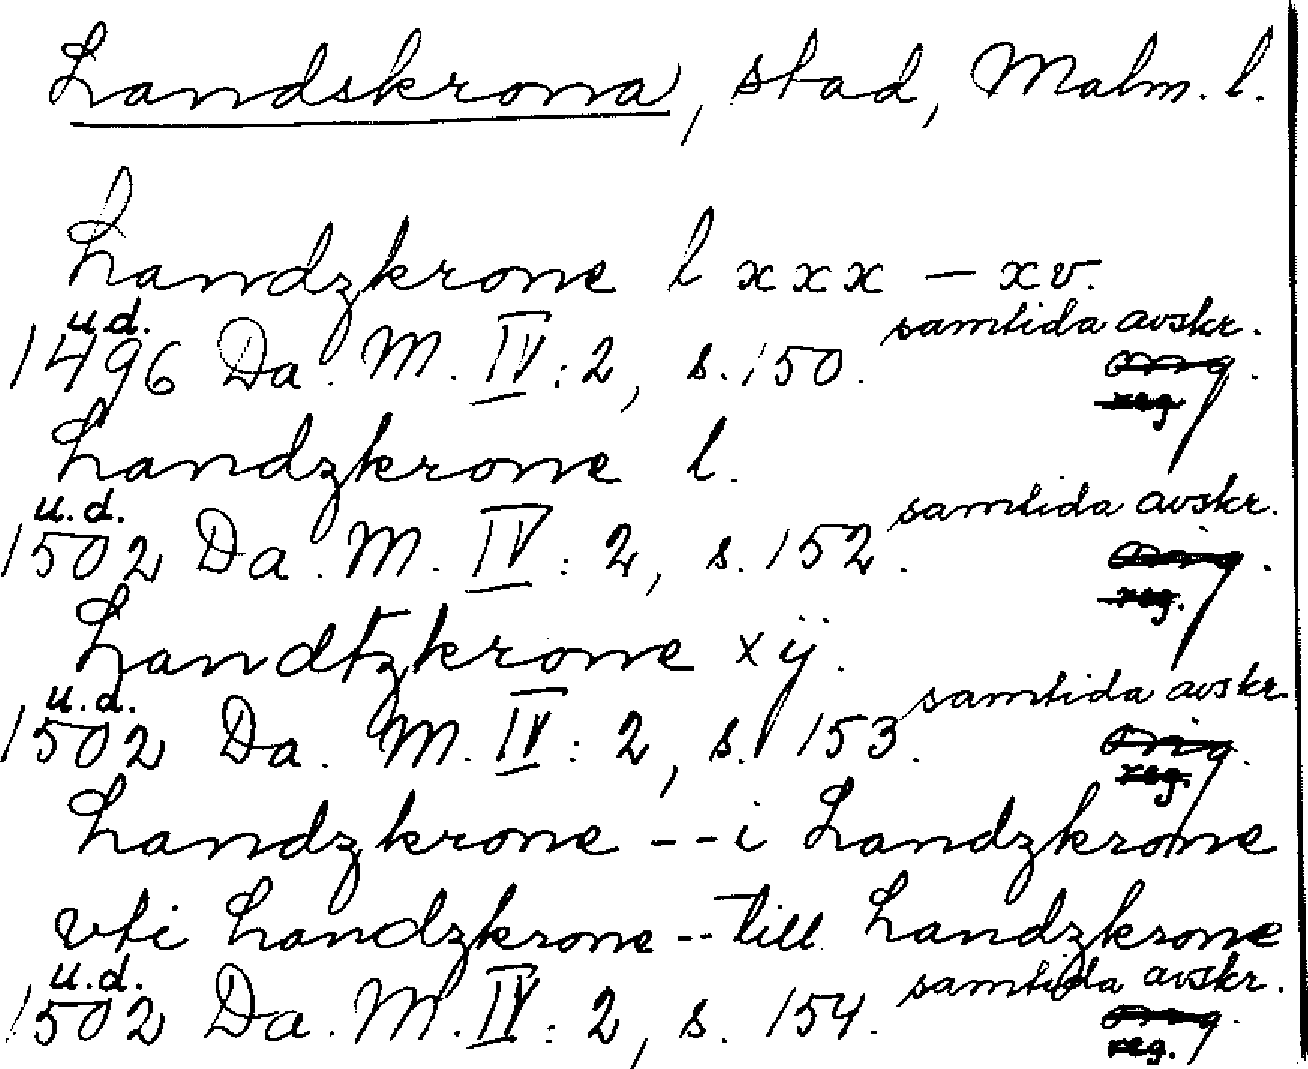 Landskrona, stad, Malm. l.
Landzkrone l xxx — xv.
u.d. samtida avskr.
1496 Da. M. IV: 2, s. 150. orig.
reg.
Landzkrone l.
u.d. samtida avskr.
1502 Da. M. IV: 2, s. 152. orig.
reg.
Landtzkrone xij.
u.d. samtida avskr.
1502 Da. M. IV: 2, s. 153. orig.
reg.
Landzkrone -- i Landzkrone
vti Landzkrone -- till Landzkrone
u.d. samtida avskr.
1502 Da. M. IV: 2, s. 154. orig.
reg.